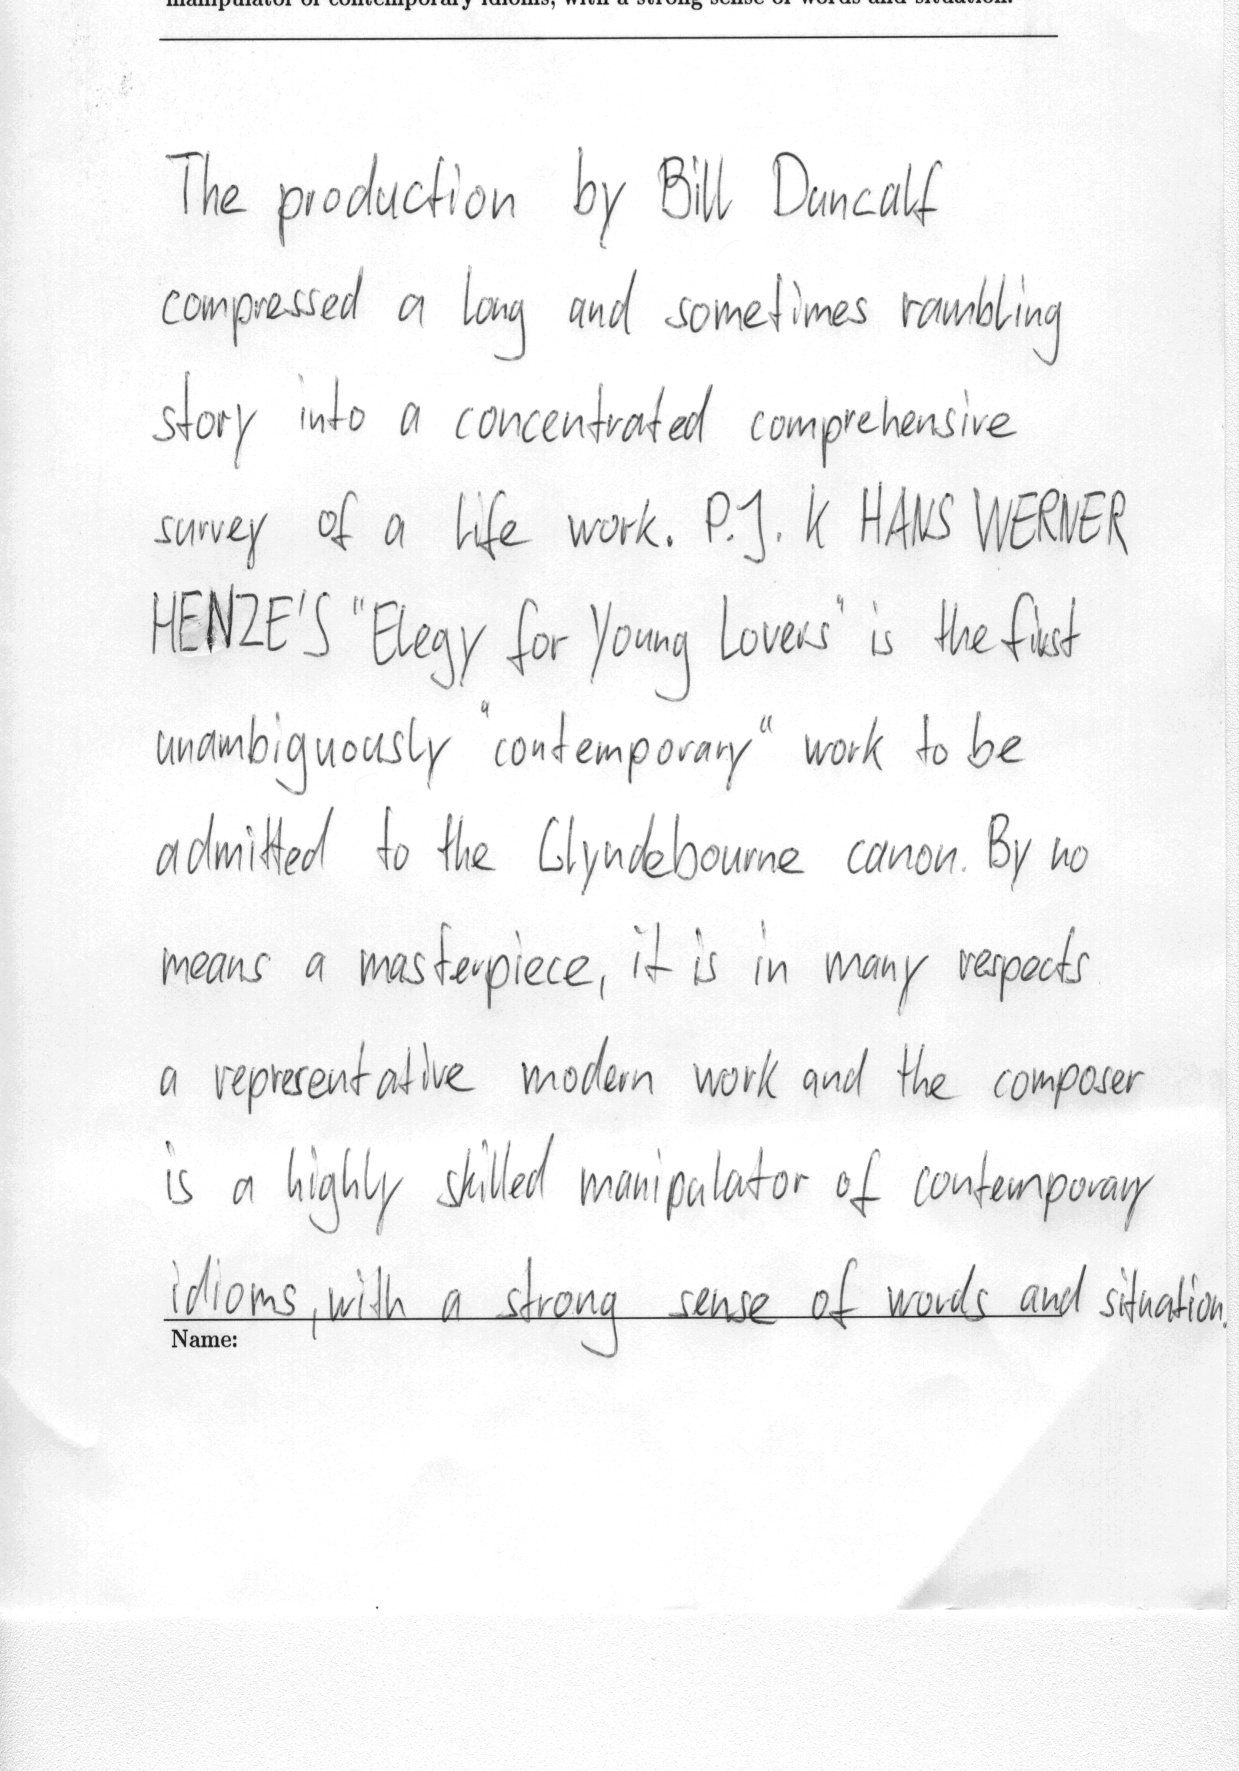 manipulator of contemporary idioms, with a strong sense of words and situation.
The production by Bill Duncalf
compressed a long and sometimes rambling
story into a concentrated comprehensive
survey of a life work. P.J. K HANS WERNER
HENZE'S "Elegy for Young Lovers" is the first
unambiguously "contemporary" work to be
admitted to the Glyndebourne canon. By no
means a masterpiece, it is in many respects
a representative modern work and the composer
is a highly skilled manipulator of contemporary
idioms, with a strong sense of words and situation.
Name: